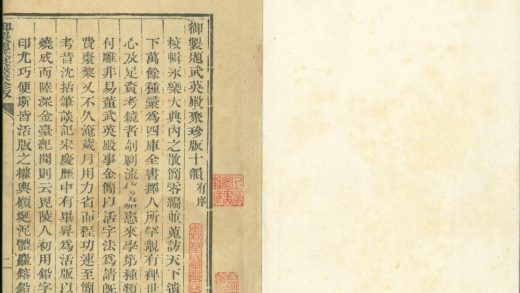 御製題武英殿聚珍版十韻有序
校輯永樂大典內之散簡零編並蒐訪天下遺
下萬餘種彙爲四庫全書擇人所罕覯有裨世
心及足資考鏡者剞劂流傳嘉惠來學第種類
付雕非易董武英殿事金簡以活字法爲請既
費棗黎又不久淹歲月用力省而程功速至簡
考昔沈括筆談記宋慶歷中有畢昇爲活版以
燒成而陸深金臺紀聞則云毘陵人初用鉛字
印尤巧便斯皆活版之權輿顧埏泥體麤鎔鉛